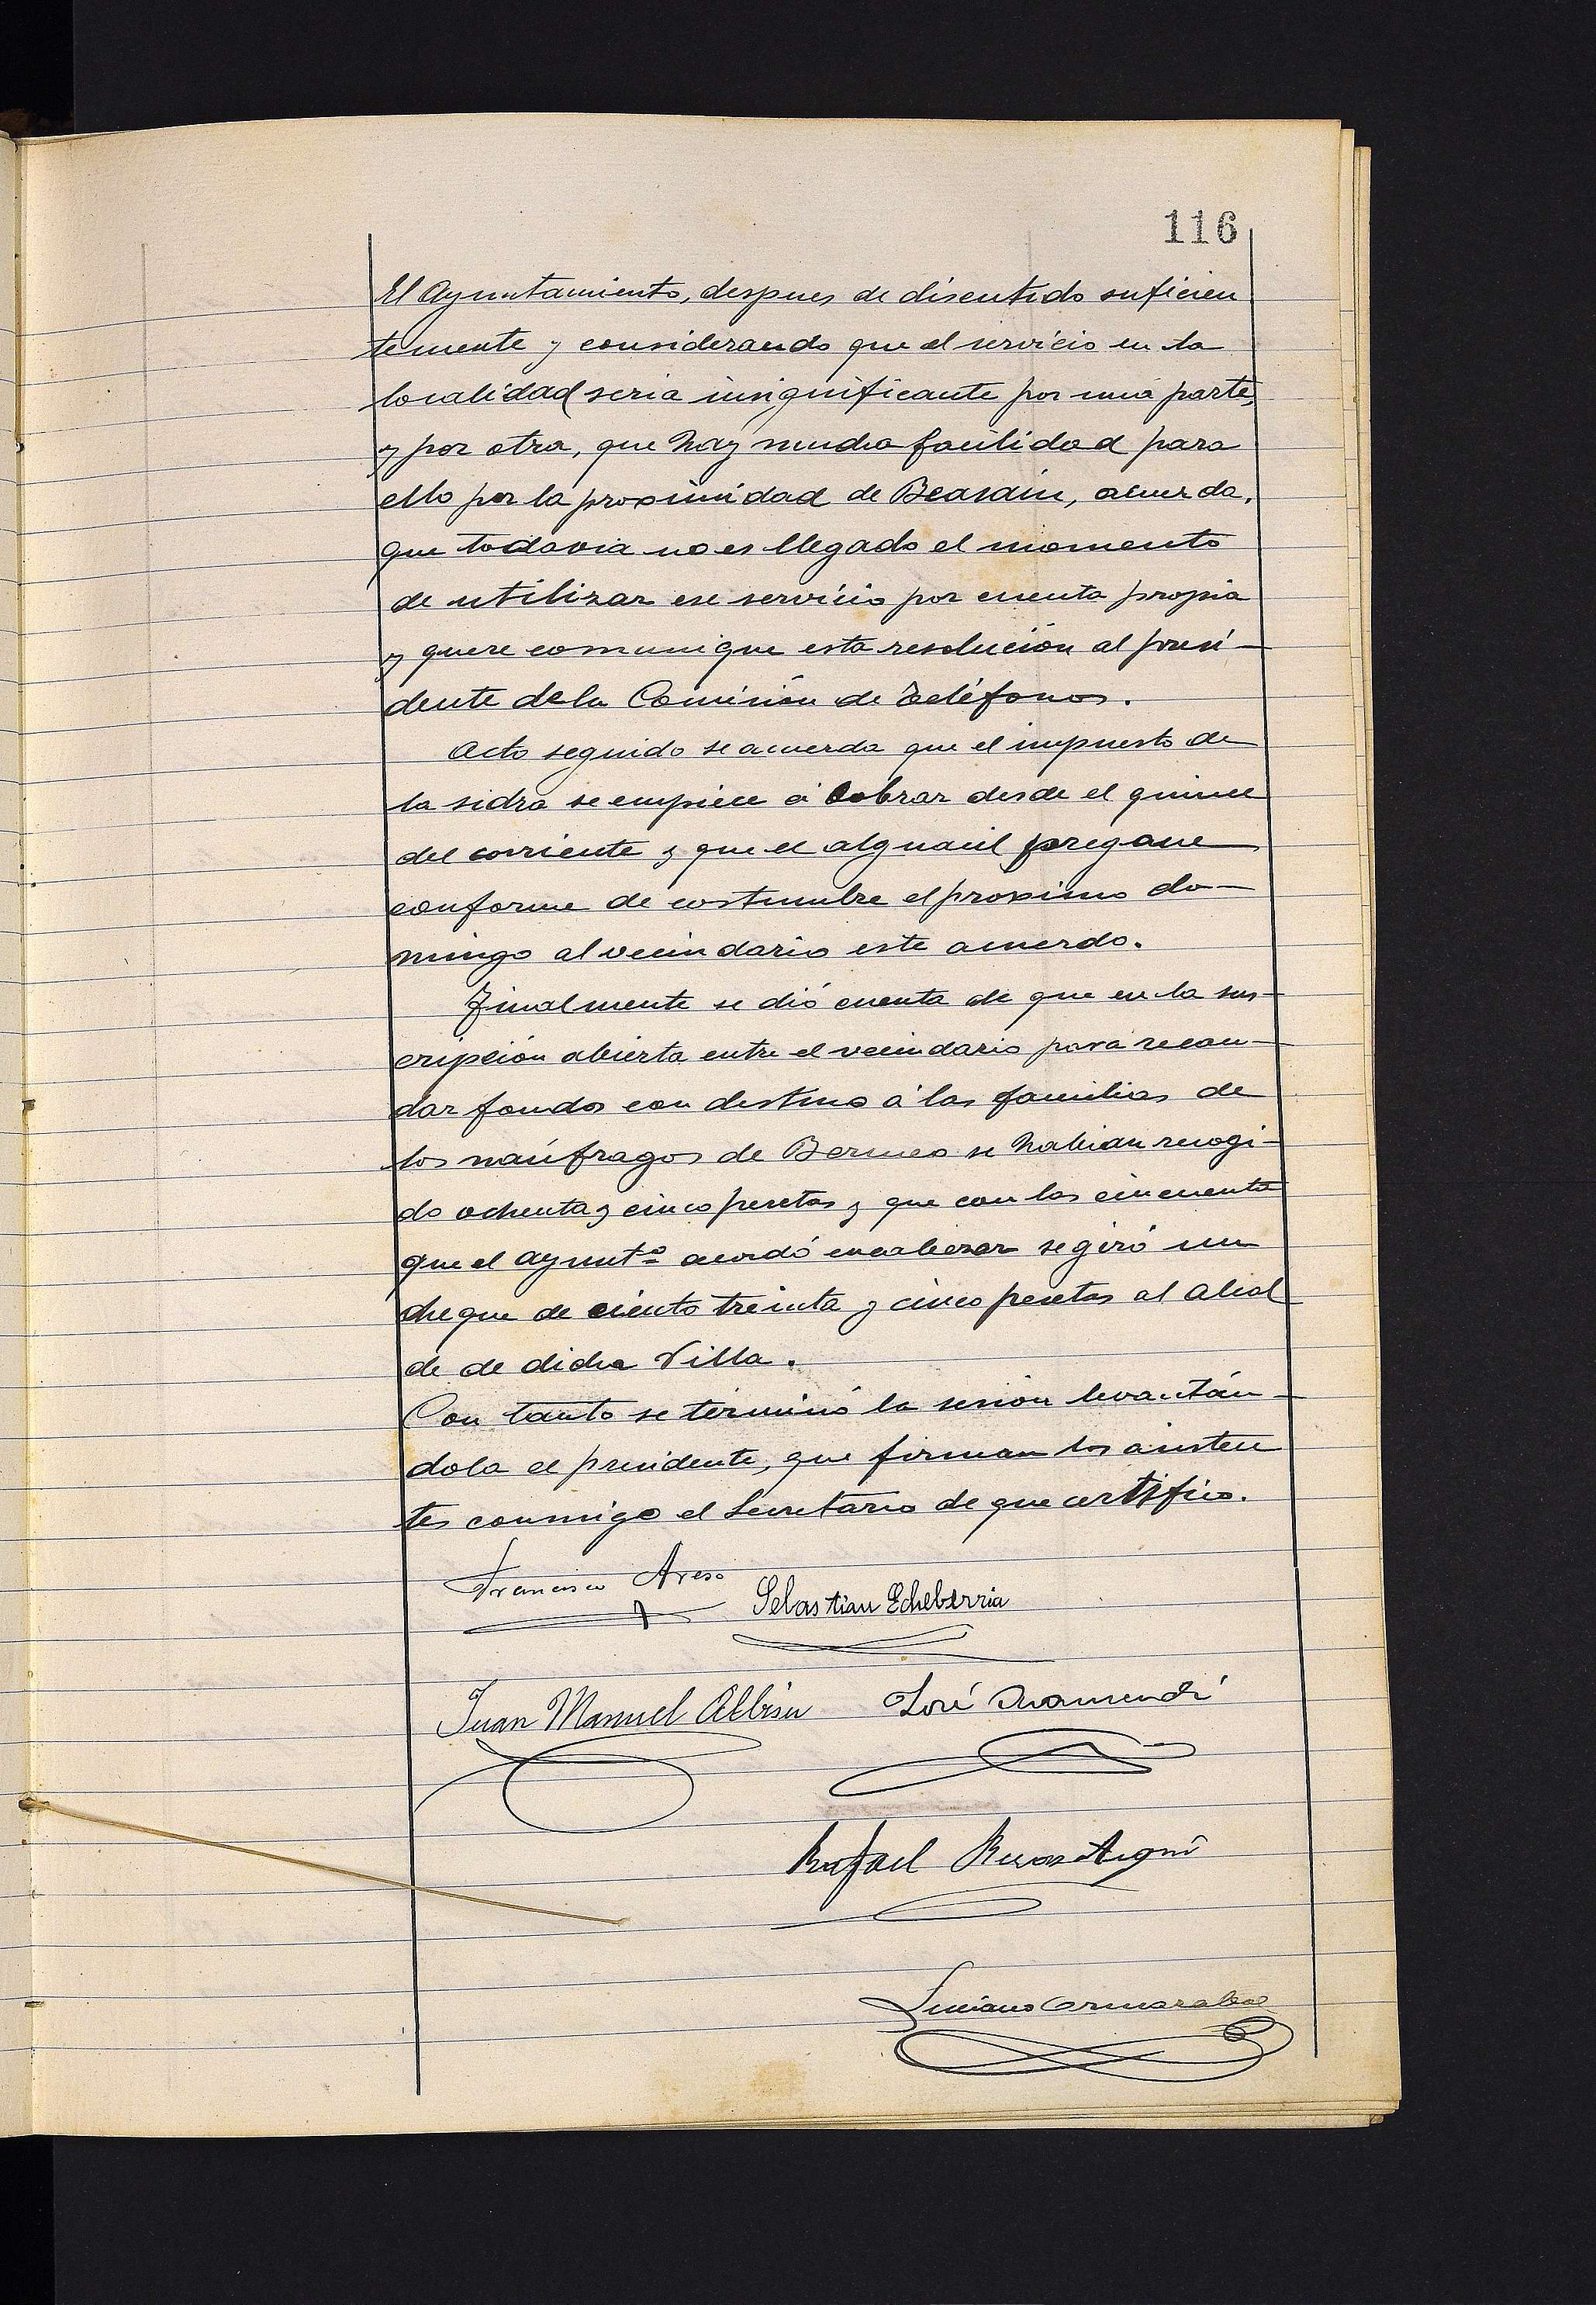 116
El Ayuntamiento, despues de discutido suficien
temente y considerando que el servicio en la
localidad seria insignificante por una parte,
y por otra, que hay mucha facilidad para
ello por la proximidad de Beasain, acuerda,
que todavia no es llegado el momento
de utilizar ese servicio por cuenta propia
y que se comunique esta resolución al presi-
dente de la Comisión de Teléfonos.
Acto seguido se acuerda que el impuesto de
la sidra se empiece á cobrar desde el quince
del corriente y que el alguacil pregone
conforme de costumbre el proximo do-
mingo al vecindario este acuerdo.
Finalmente se dió cuenta de que en la sus-
cripción abierta entre el vecindario para recau-
dar fondos con destino á las familias de
los naúfragos de Bermeo se habian recogi-
do ochenta y cinco pesetas y que con las cincuenta
que el Ayuntº acordó encabezar se giró un
cheque de ciento treinta y cinco pesetas al Alcal
de de dicha Villa.
Con tanto se términó la sesión levantán-
dola el presidente, que firman los asisten
tes conmigo el Secretario de que certifico.
Francisco Areso
Sebastian Echeberria
Juan Manuel Albisu José
Rafael
Luciano